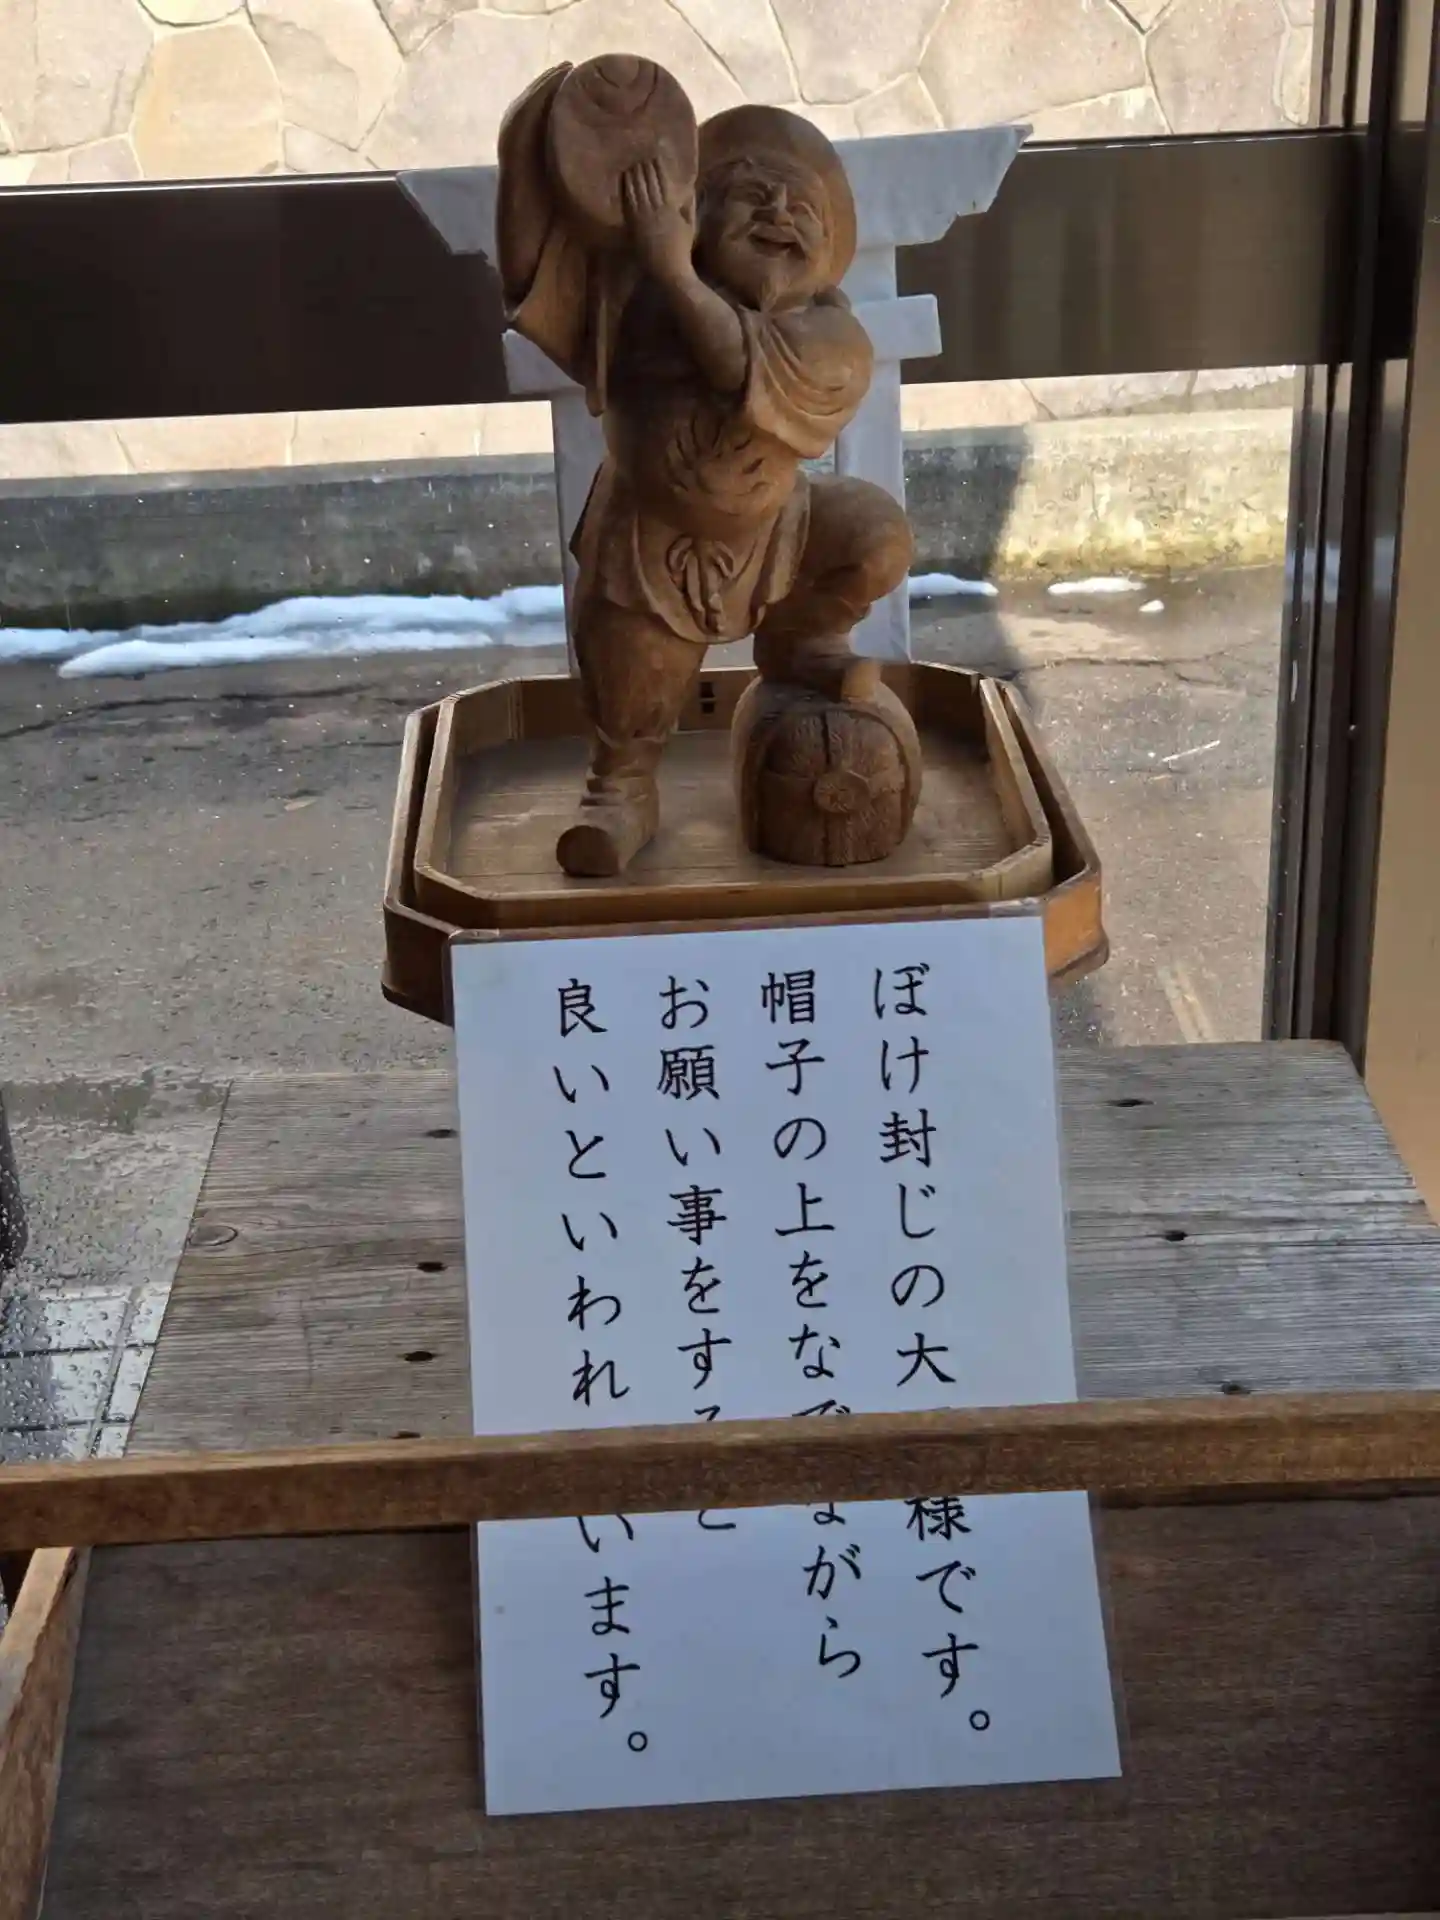 ぼけ封じの大 様です。
帽子の上をなでながら
お願い事をすると
良いといわれ います。